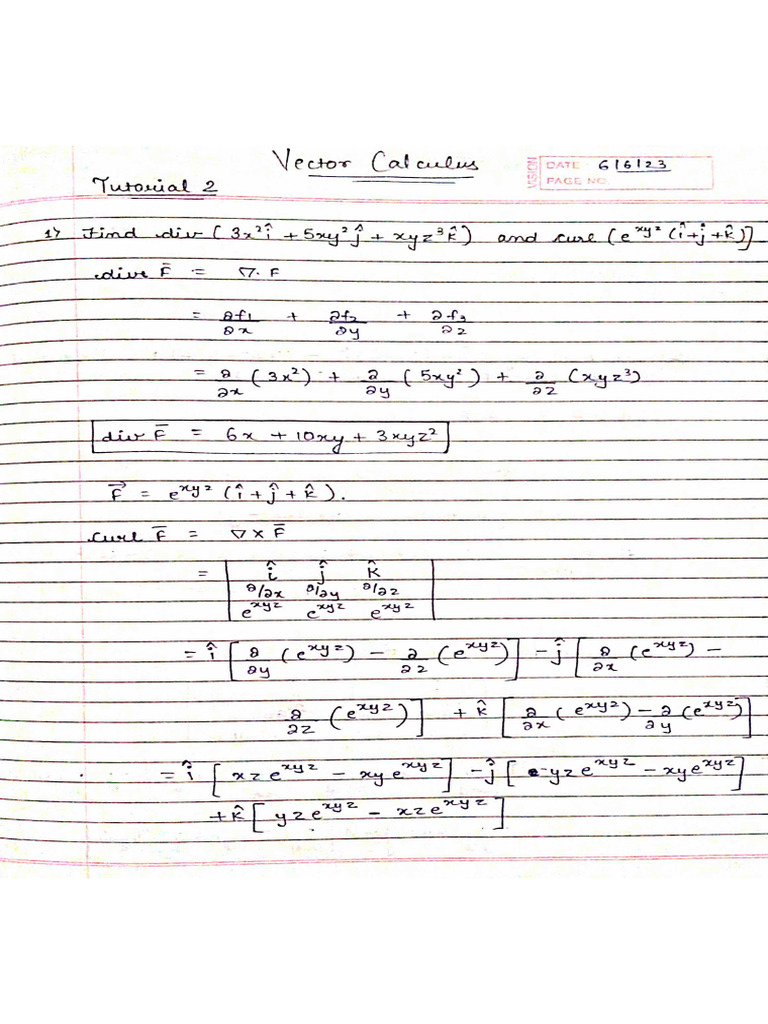 Vector Calculus
VISION
DATE 6/6/23
PAGE NO.
Tutorial 2
1) Find div (3x²î + 5xy²ĵ + xyz³k̂) and curl (e^xyz (î+ĵ+k̂)]
dive F̄ = ∇. F
= ∂f₁/∂x + ∂f₂/∂y + ∂f₃/∂z
= ∂/∂x (3x²) + ∂/∂y (5xy²) + ∂/∂z (xyz³)
div F̄ = 6x + 10xy + 3xyz²
F⃗ = e^xyz (î+ĵ+k̂).
curl F̄ = ∇ × F̄
= | î ĵ k̂ |
| ∂/∂x ∂/∂y ∂/∂z |
| e^xyz e^xyz e^xyz |
= î [∂/∂y (e^xyz) − ∂/∂z (e^xyz)] − ĵ [∂/∂x (e^xyz) −
∂/∂z (e^xyz)] + k̂ [∂/∂x (e^xyz) − ∂/∂y (e^xyz)]
= î [xze^xyz − xye^xyz] − ĵ [yze^xyz − xye^xyz]
+ k̂ [yze^xyz − xze^xyz]